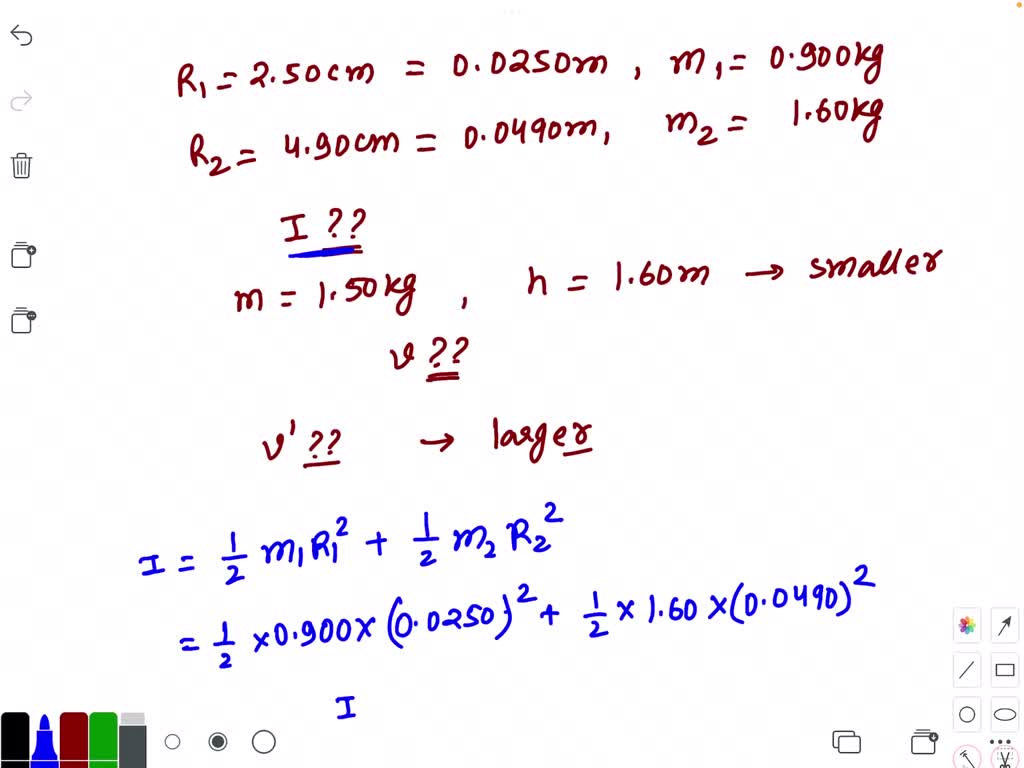 R₁ = 2.50cm = 0.0250m , m₁ = 0.900kg
R₂ = 4.90cm = 0.0490m, m₂ = 1.60kg
I ??
m = 1.50kg , h = 1.60m → smaller
v ??
v' ?? → larger
I = 1/2 m₁R₁² + 1/2 m₂R₂²
= 1/2 × 0.900 × (0.0250)² + 1/2 × 1.60 × (0.0490)²
I